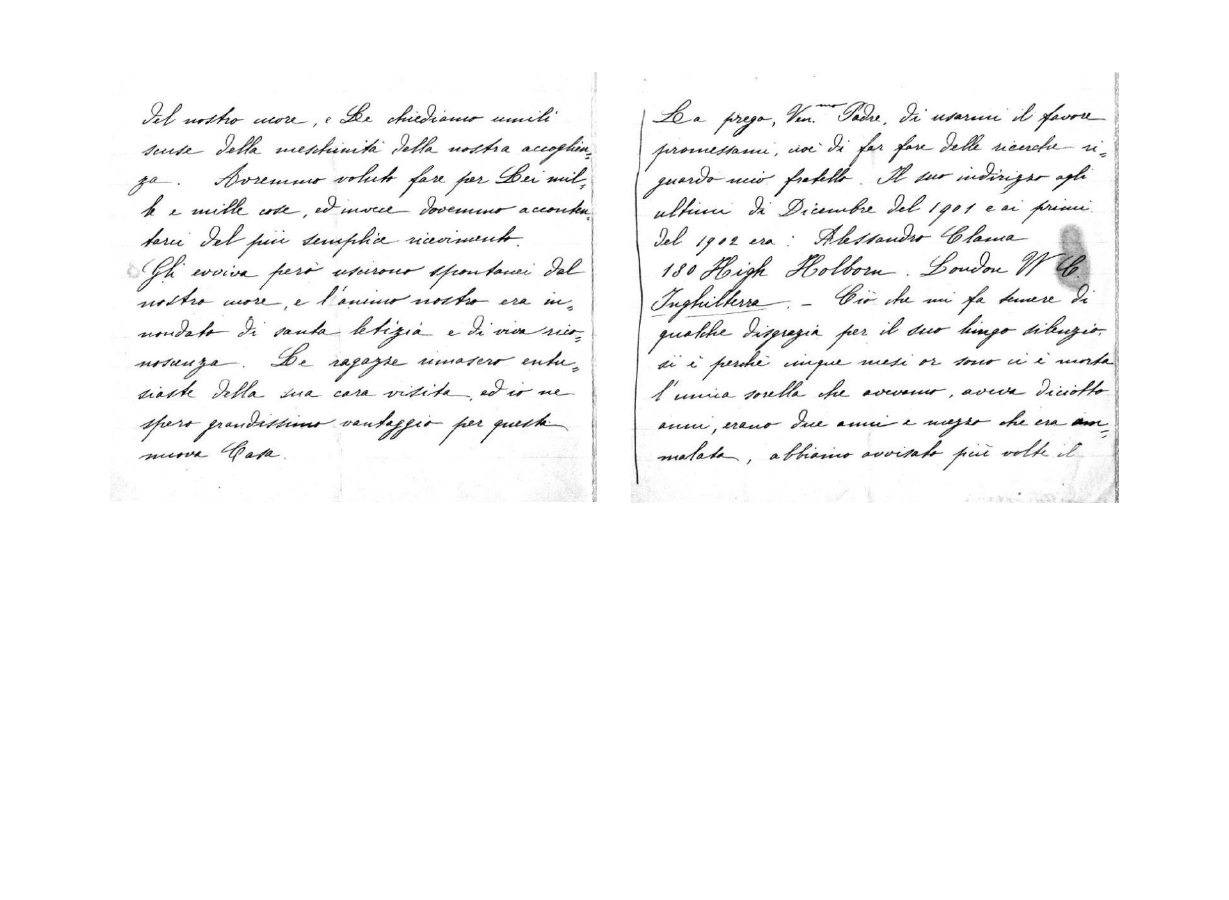 del nostro cuore, e Le chiediamo umili
scuse della meschinità della nostra accoglien=
za. Avremmo voluto fare per Lei mil=
le e mille cose, ed invece dovemmo acconten=
tarci del più semplice ricevimento.
Gli evviva però uscirono spontanei dal
nostro cuore, e l'animo nostro era in=
nondato di santa letizia e di viva rico=
noscenza. Le ragazze rimasero entu=
siaste della sua cara visita, ed io ne
spero grandissimo vantaggio per questa
nuova Casa.
La prego, Ven.mo Padre, di usarmi il favore
promessomi, cioè di far fare delle ricerche ri=
guardo mio fratello. Il suo indirizzo agli
ultimi di Dicembre del 1901 e ai primi
del 1902 era: Alessandro Clama
180 High Holborn. London W C.
Inghilterra. - Ciò che mi fa temere di
qualche disgrazia per il suo lungo silenzio,
si è perchè cinque mesi or sono ci è morta
l'unica sorella che avevamo, aveva diciotto
anni, erano due anni e mezzo che era am=
malata, abbiamo avvisato più volte il